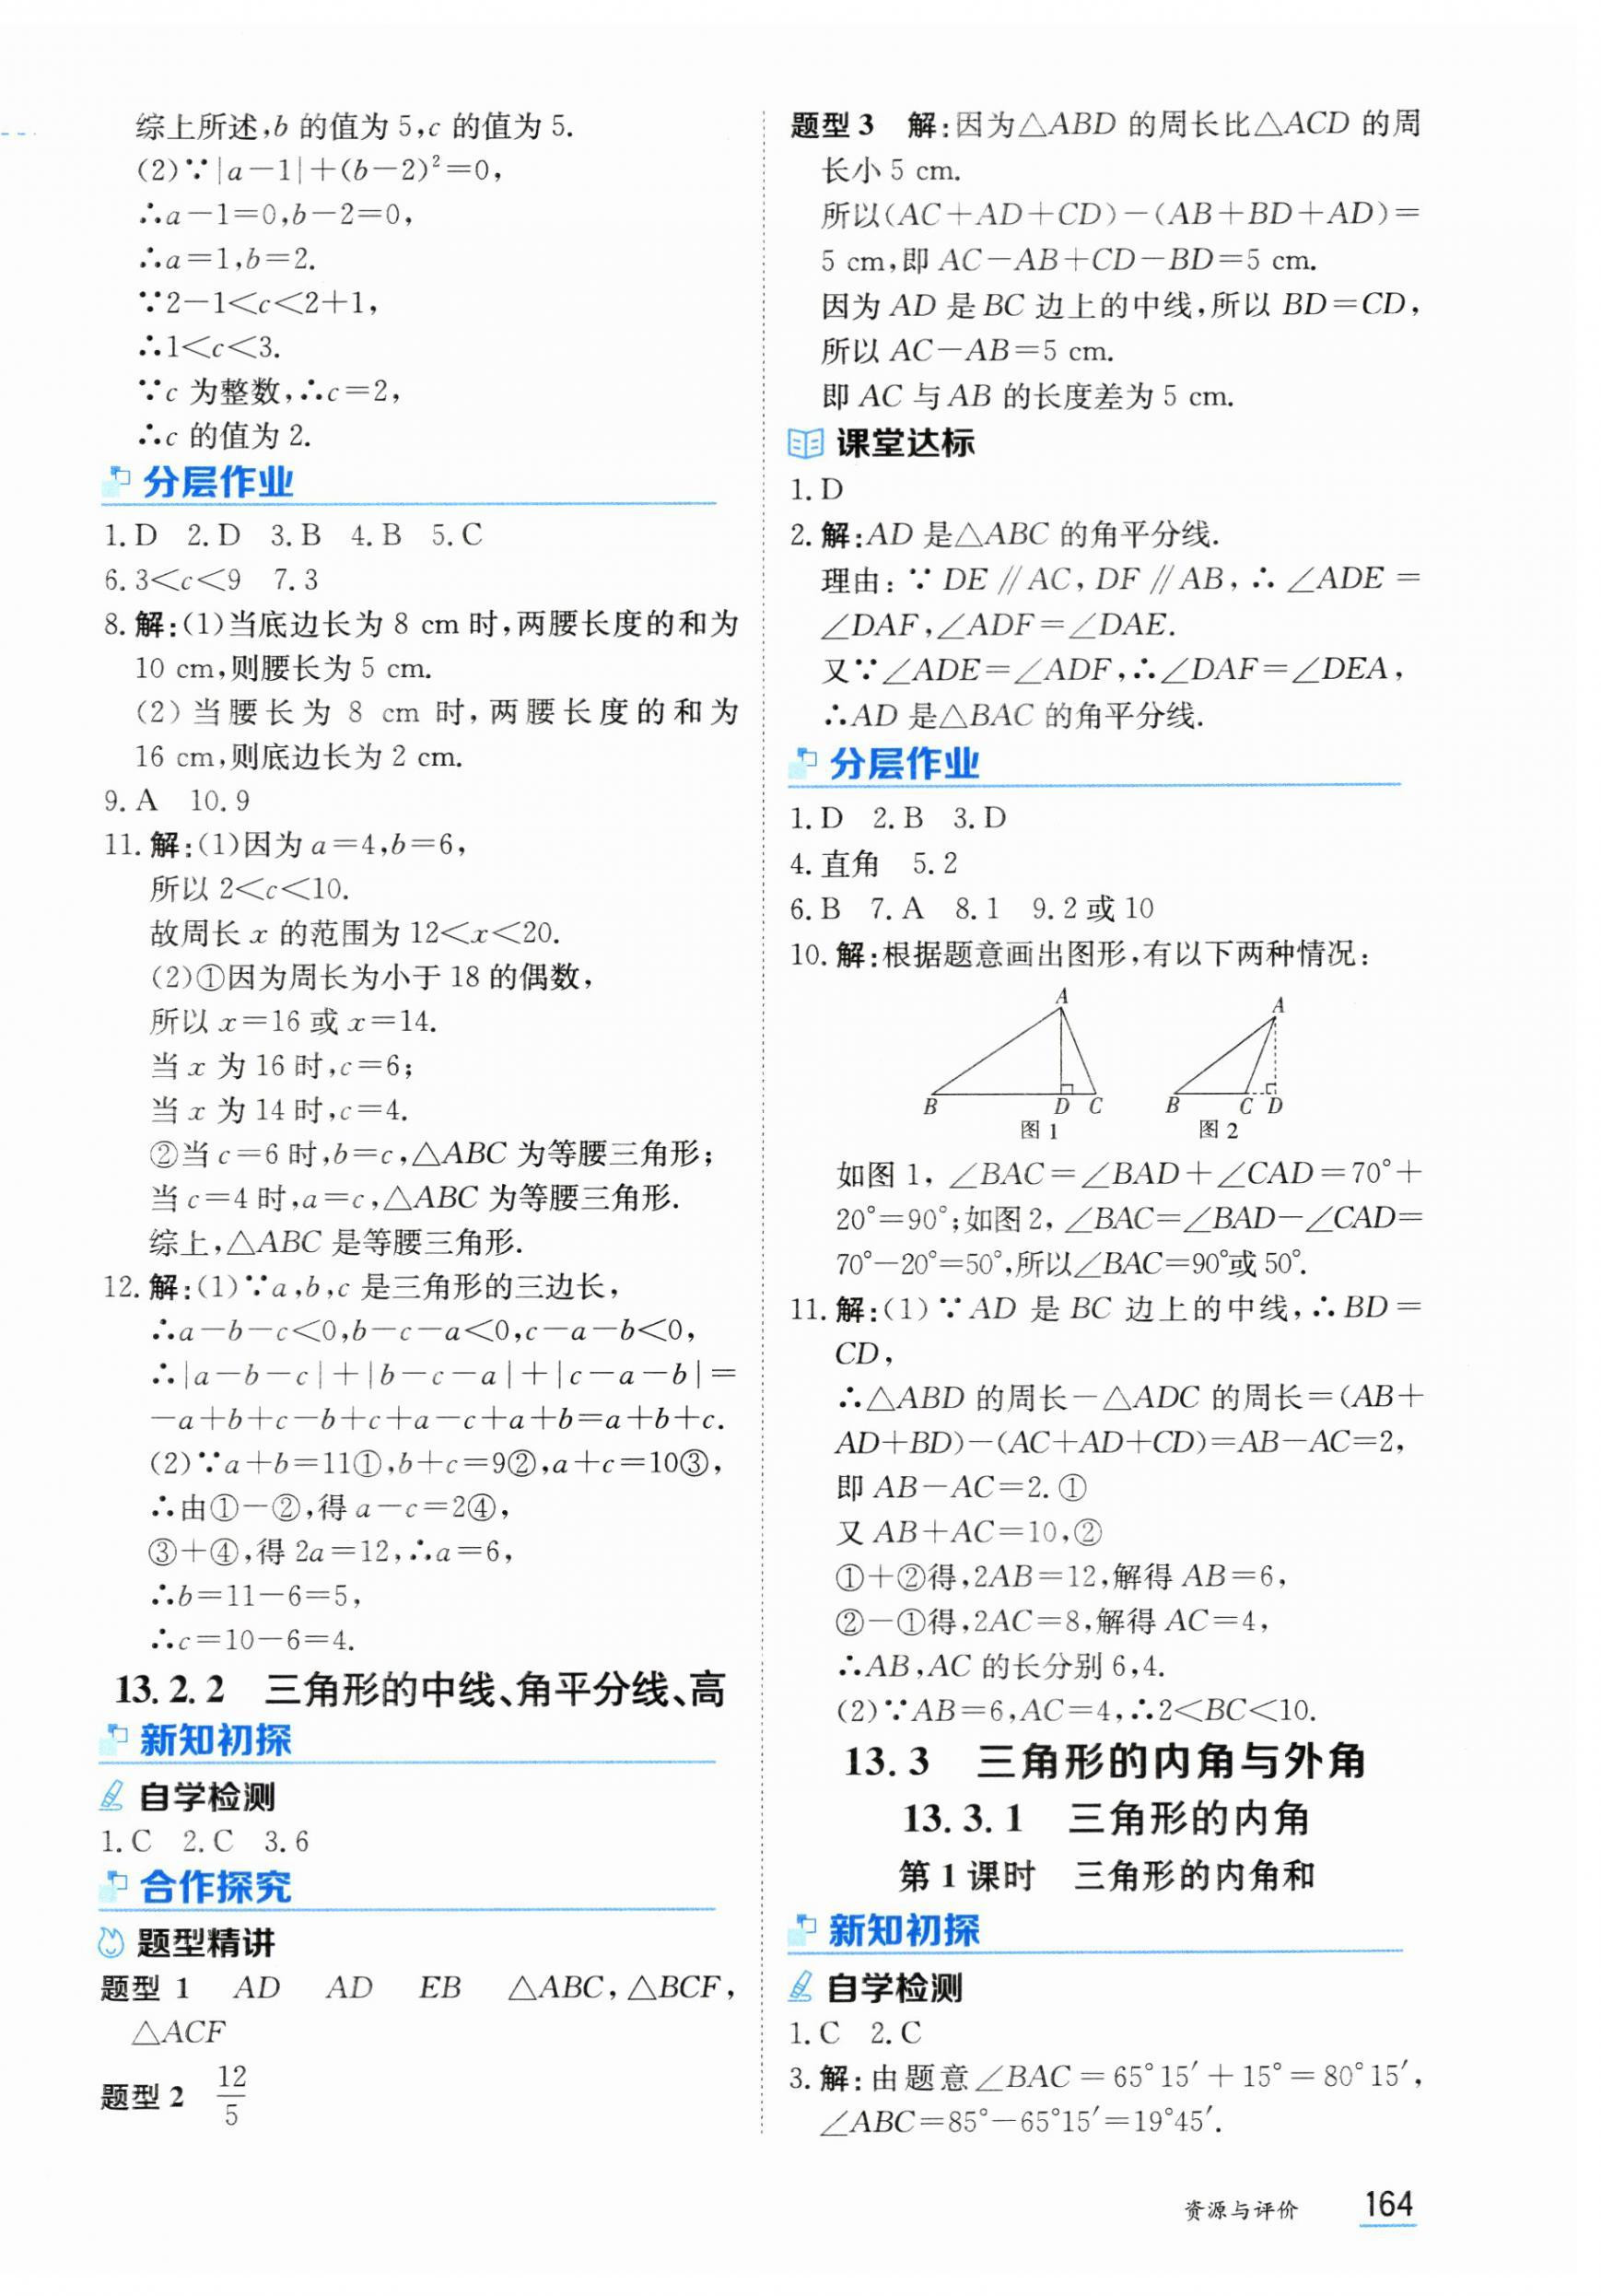 综上所述,b 的值为 5,c 的值为 5.
(2)∵|a－1|＋(b－2)²＝0,
∴a－1＝0,b－2＝0,
∴a＝1,b＝2.
∵2－1＜c＜2＋1,
∴1＜c＜3.
∵c 为整数,∴c＝2,
∴c 的值为 2.
分层作业
1. D 2. D 3. B 4. B 5. C
6. 3＜c＜9 7. 3
8. 解:(1)当底边长为 8 cm 时,两腰长度的和为
10 cm,则腰长为 5 cm.
(2)当腰长为 8 cm 时,两腰长度的和为
16 cm,则底边长为 2 cm.
9. A 10. 9
11. 解:(1)因为 a＝4,b＝6,
所以 2＜c＜10.
故周长 x 的范围为 12＜x＜20.
(2)①因为周长为小于 18 的偶数,
所以 x＝16 或 x＝14.
当 x 为 16 时,c＝6;
当 x 为 14 时,c＝4.
②当 c＝6 时,b＝c,△ABC 为等腰三角形;
当 c＝4 时,a＝c,△ABC 为等腰三角形.
综上,△ABC 是等腰三角形.
12. 解:(1)∵a,b,c 是三角形的三边长,
∴a－b－c＜0,b－c－a＜0,c－a－b＜0,
∴|a－b－c|＋|b－c－a|＋|c－a－b|＝
－a＋b＋c－b＋c＋a－c＋a＋b＝a＋b＋c.
(2)∵a＋b＝11①,b＋c＝9②,a＋c＝10③,
∴由①－②,得 a－c＝2④,
③＋④,得 2a＝12,∴a＝6,
∴b＝11－6＝5,
∴c＝10－6＝4.
13. 2. 2 三角形的中线、角平分线、高
新知初探
自学检测
1. C 2. C 3. 6
合作探究
题型精讲
题型 1 AD AD EB △ABC,△BCF,
△ACF
题型 2 12/5
题型 3 解:因为△ABD 的周长比△ACD 的周
长小 5 cm.
所以(AC＋AD＋CD)－(AB＋BD＋AD)＝
5 cm,即 AC－AB＋CD－BD＝5 cm.
因为 AD 是 BC 边上的中线,所以 BD＝CD,
所以 AC－AB＝5 cm.
即 AC 与 AB 的长度差为 5 cm.
课堂达标
1. D
2. 解:AD 是△ABC 的角平分线.
理由:∵DE∥AC,DF∥AB,∴∠ADE＝
∠DAF,∠ADF＝∠DAE.
又∵∠ADE＝∠ADF,∴∠DAF＝∠DEA,
∴AD 是△BAC 的角平分线.
分层作业
1. D 2. B 3. D
4. 直角 5. 2
6. B 7. A 8. 1 9. 2 或 10
10. 解:根据题意画出图形,有以下两种情况:
A A
B D C B C D
图 1 图 2
如图 1,∠BAC＝∠BAD＋∠CAD＝70°＋
20°＝90°;如图 2,∠BAC＝∠BAD－∠CAD＝
70°－20°＝50°,所以∠BAC＝90°或 50°.
11. 解:(1)∵AD 是 BC 边上的中线,∴BD＝
CD,
∴△ABD 的周长－△ADC 的周长＝(AB＋
AD＋BD)－(AC＋AD＋CD)＝AB－AC＝2,
即 AB－AC＝2. ①
又 AB＋AC＝10,②
①＋②得,2AB＝12,解得 AB＝6,
②－①得,2AC＝8,解得 AC＝4,
∴AB,AC 的长分别 6,4.
(2)∵AB＝6,AC＝4,∴2＜BC＜10.
13. 3 三角形的内角与外角
13. 3. 1 三角形的内角
第 1 课时 三角形的内角和
新知初探
自学检测
1. C 2. C
3. 解:由题意∠BAC＝65°15′＋15°＝80°15′,
∠ABC＝85°－65°15′＝19°45′.
资源与评价 164